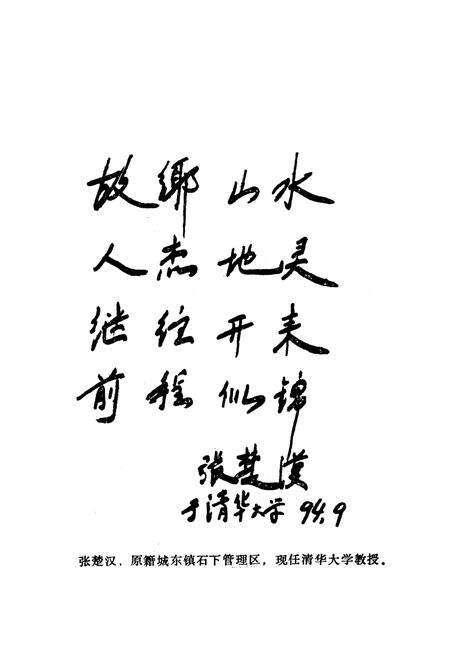 故鄉山水
人杰地灵
继往开来
前程似锦
张楚漢
于清华大学 94.9
张楚汉，原籍城东镇石下管理区，现任清华大学教授。